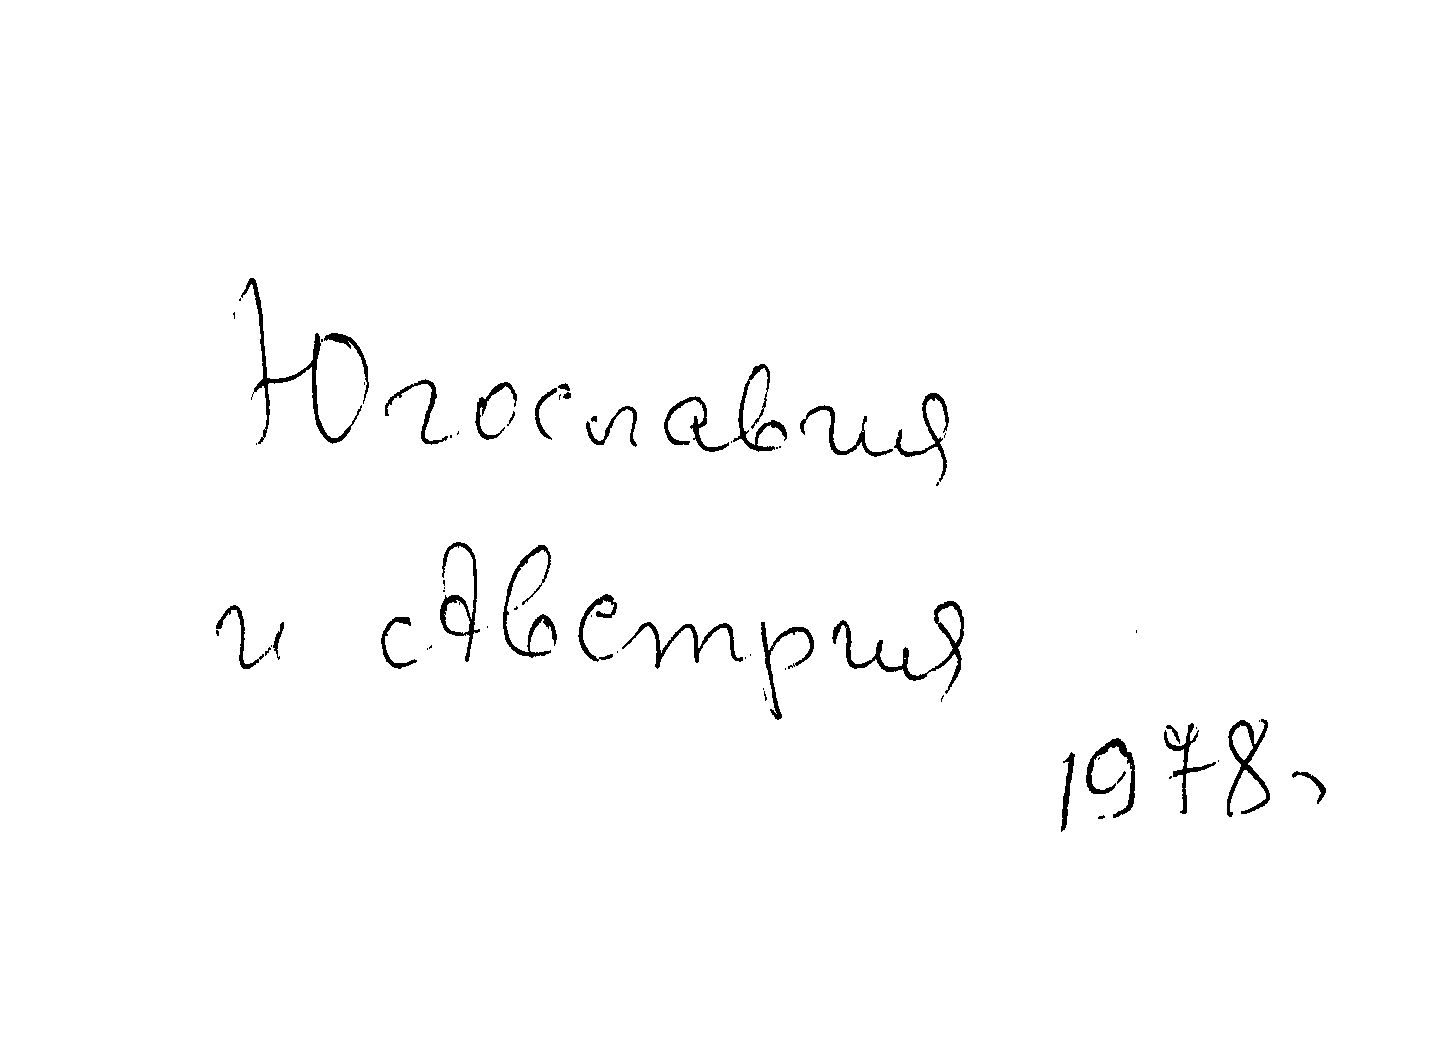 Югославия
и Австрия
1978г